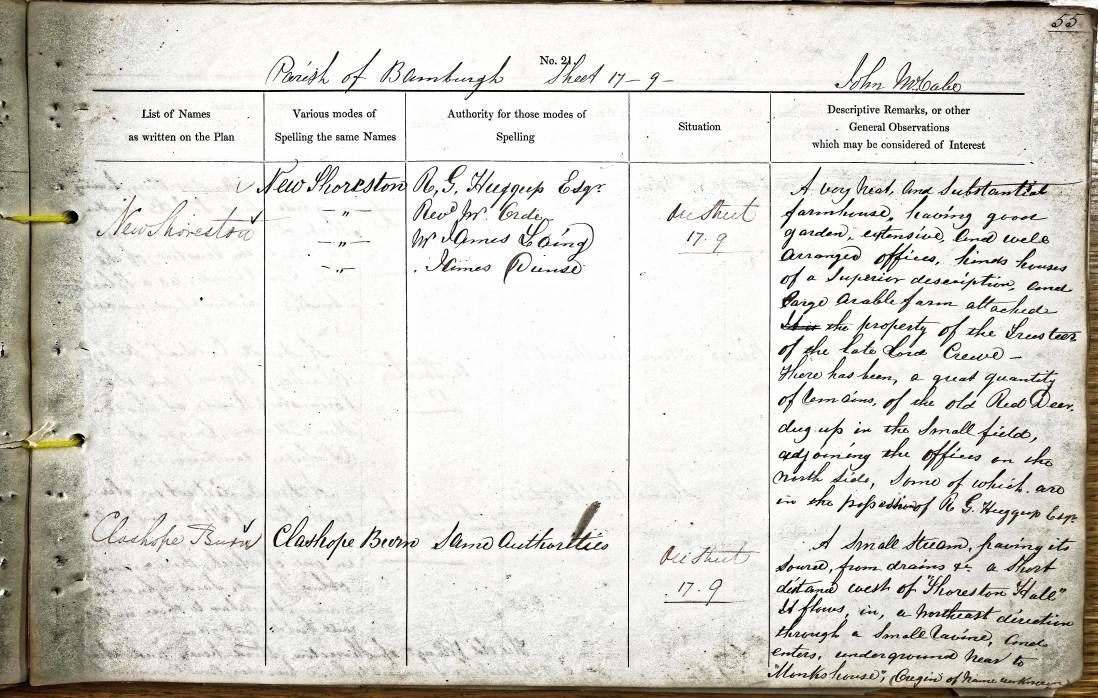 55
No. 21.
Parish of Bamburgh Sheet 17 - 9 - John McCabe
List of Names
as written on the Plan
Various modes of
Spelling the same Names
Authority for those modes of
Spelling
Situation
Descriptive Remarks, or other
General Observations
which may be considered of Interest
New Shoreston
New Shoreston
— " —
— " —
— " —
R. G. Huggup Esqr
Revd Mr.
Mr James Laing
James
On Sheet
17.9
A very neat, and Substantial
farmhouse, having good
garden, extensive, and well
arranged offices, hinds houses
of a Superior description, and
large arable farm attached
It is the property of the Trustees
of the late Lord Crewe —
There has been, a great quantity
of remains, of the old Red Deer,
dug up in the Small field,
adjoining the offices on the
north side, Some of which are
in the possession of R G. Huggup Esqr
Clashope Burn
Clashope Burn
Same Authorities
On Sheet
17.9
A Small stream, having its
source, from drains &c a short
distance west of "Shoreston Hall"
It flows, in, a Northeast direction
through a Small ravine, and
enters, underground near to
"Monkshouse", Origin of Name unknown